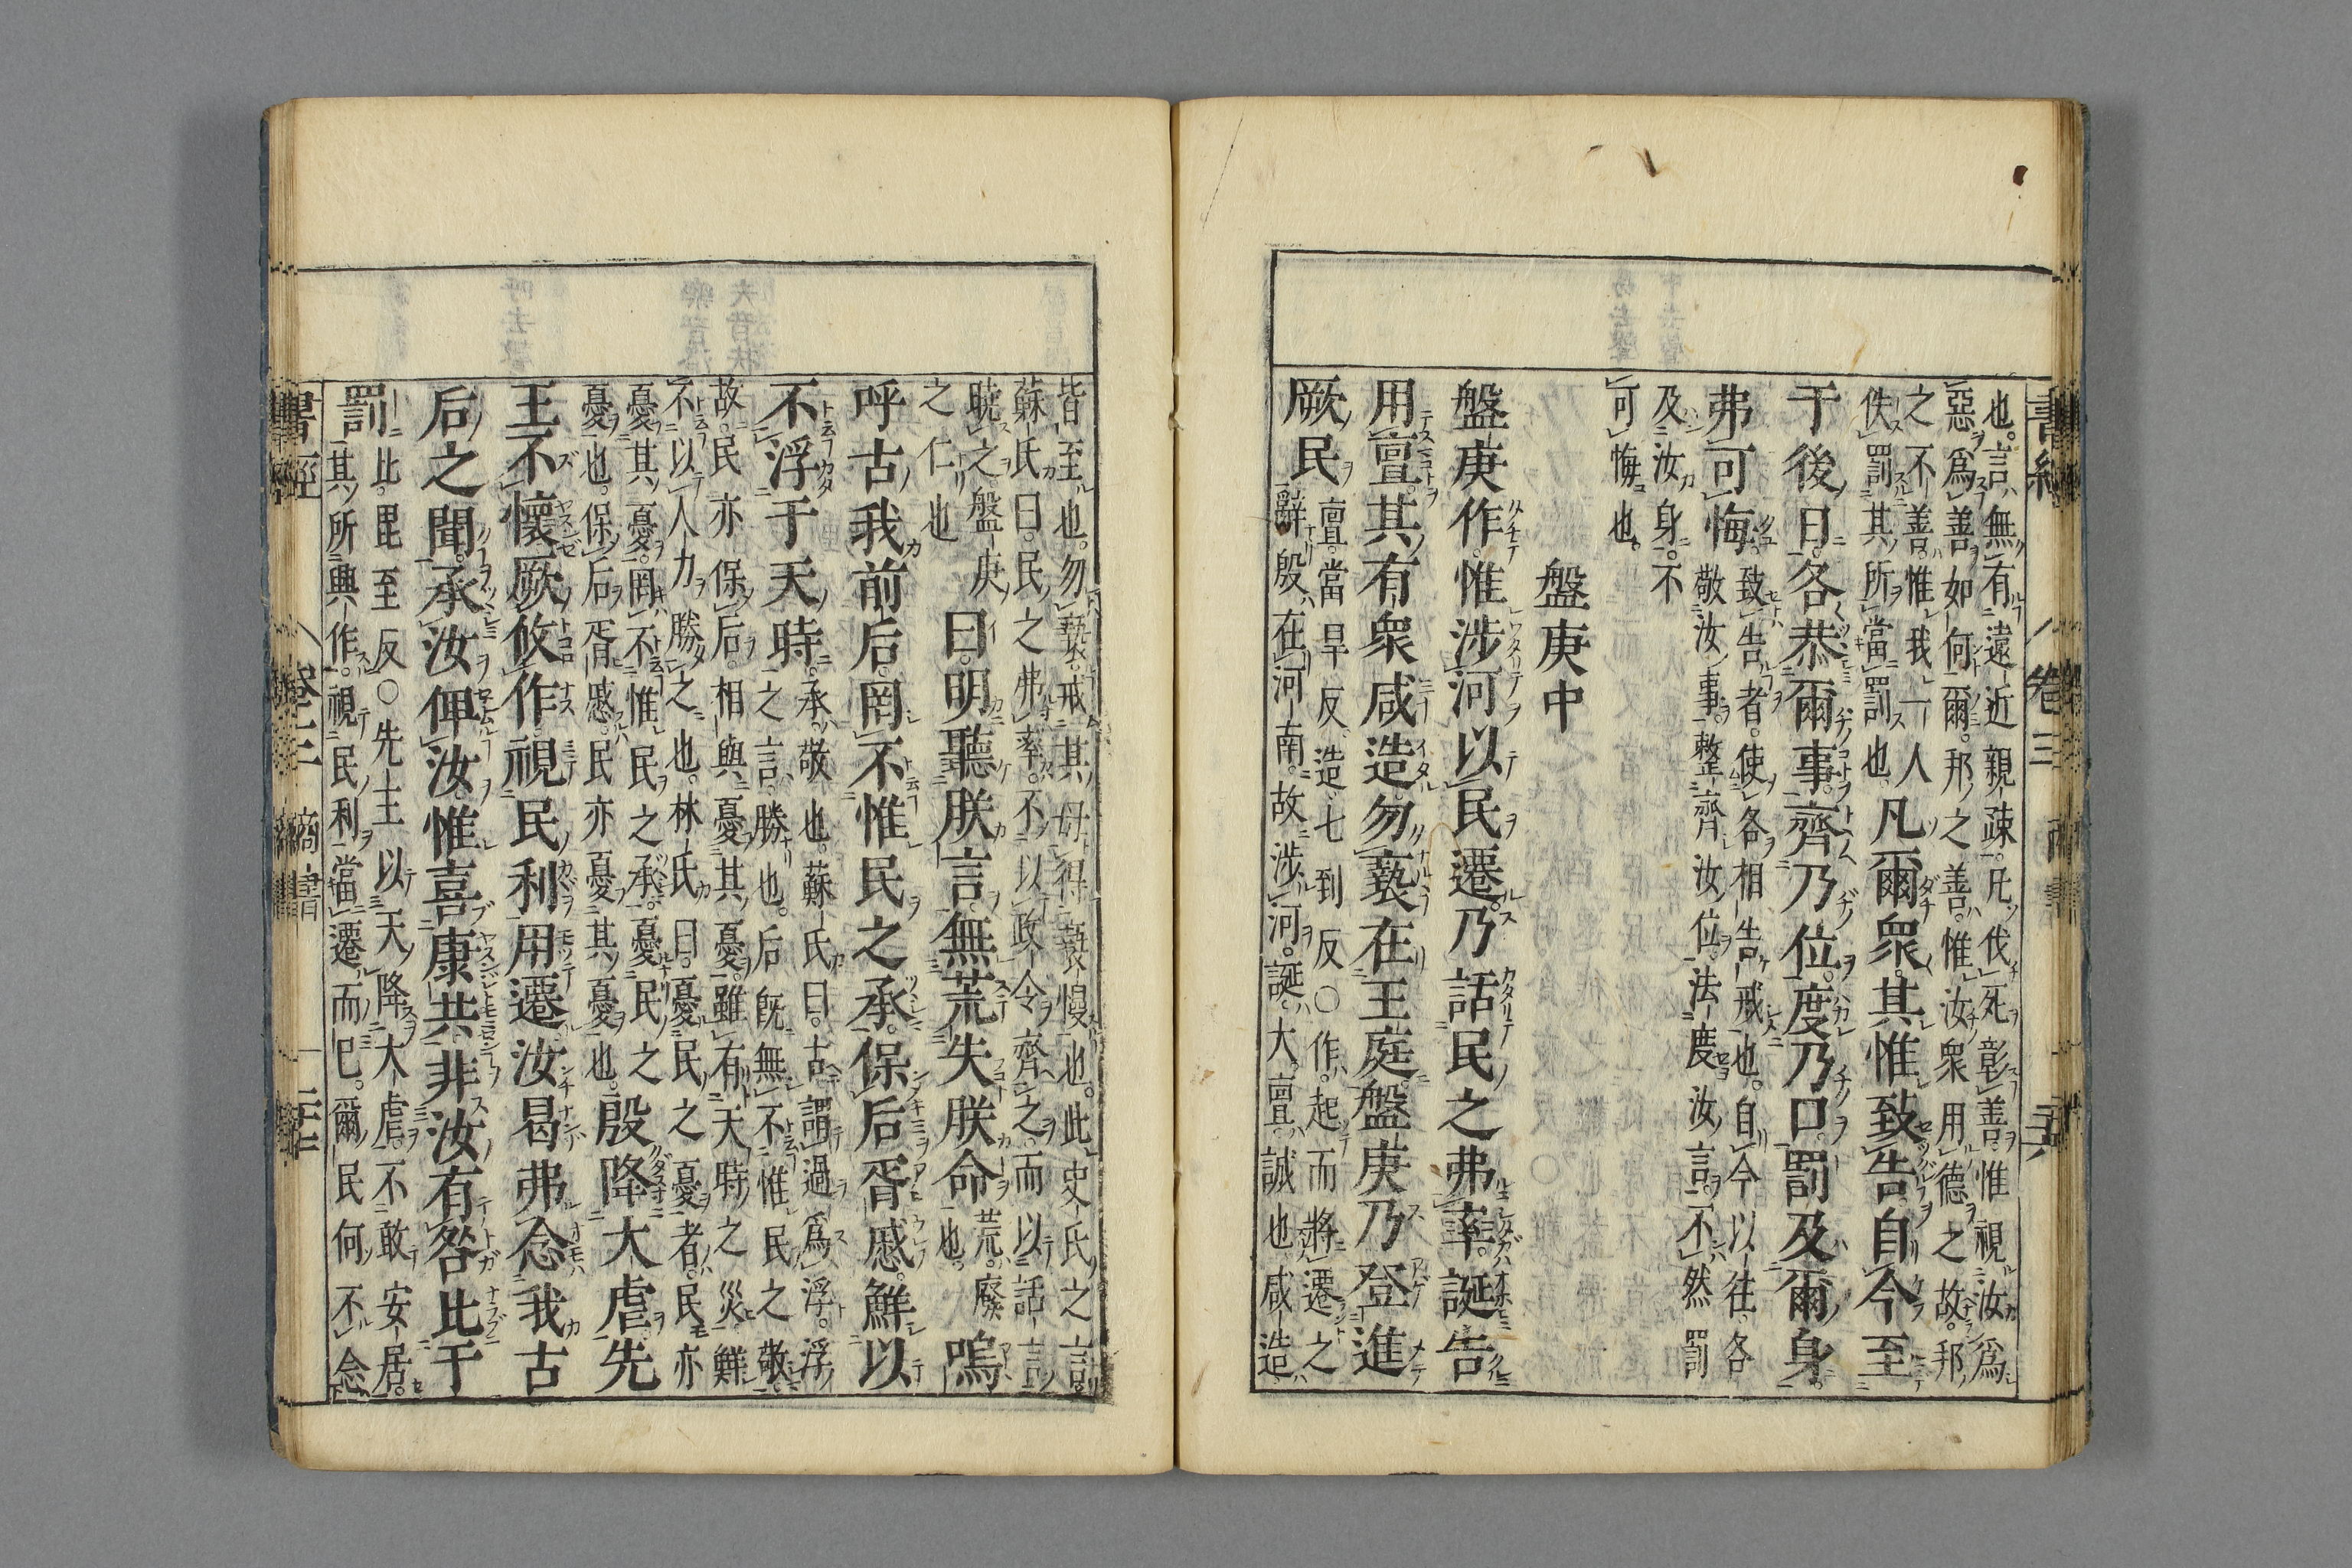 書經 卷三 商書 二十六
也。言無有遠近親疎。凡伐死彰善。惟視汝爲
惡爲善如何爾。邦之善。惟汝衆用德之故。邦
之不善。惟我一人
佚罰其所當罰也
凡爾衆。其惟致告。自今至
于後日。各恭爾事。齊乃位。度乃口。罰及爾身。
弗可悔。
致告者。使各相告戒也。自今以往。各
敬汝事。整齊汝位。法度汝言。不然罰
及汝身。不
可悔也。
盤庚中
盤庚作。惟涉河以民遷。乃話民之弗率。誕告
用亶。其有衆咸造。勿褻在王庭。盤庚乃登進
厥民
亶當旱反造七到反○作。起而將遷之
辭。殷在河南。故涉河。誕。大。亶。誠也。咸造。
皆至也。勿褻。戒其毋得褻慢也。此史氏之言。
蘇氏曰。民之弗率。不以政令齊之。而以話言
曉之。盤庚
之仁也
曰。明聽朕言。無荒失朕命
荒。廢
也。
嗚
呼古我前后。罔不惟民之承。保后胥慼。鮮以
不浮于天時。
承。敬也。蘇氏曰。古謂過爲浮。浮
之言。勝也。后旣無不惟民之敬。
故民亦保后。相與憂其憂。雖有天時之災。鮮
不以人力勝之也。林氏曰。憂民之憂者。民亦
憂其憂。罔不惟民之承。憂民之
憂也。保后胥慼。民亦憂其憂也。
殷降大虐。先
王不懷厥攸作。視民利用遷。汝曷弗念我古
后之聞。承汝俾汝。惟喜康共。非汝有咎比于
罰
比。毘至反○先王以天降大虐。不敢安居。
其所興作。視民利當遷而已。爾民何不念
書經 卷三 商書 二十七